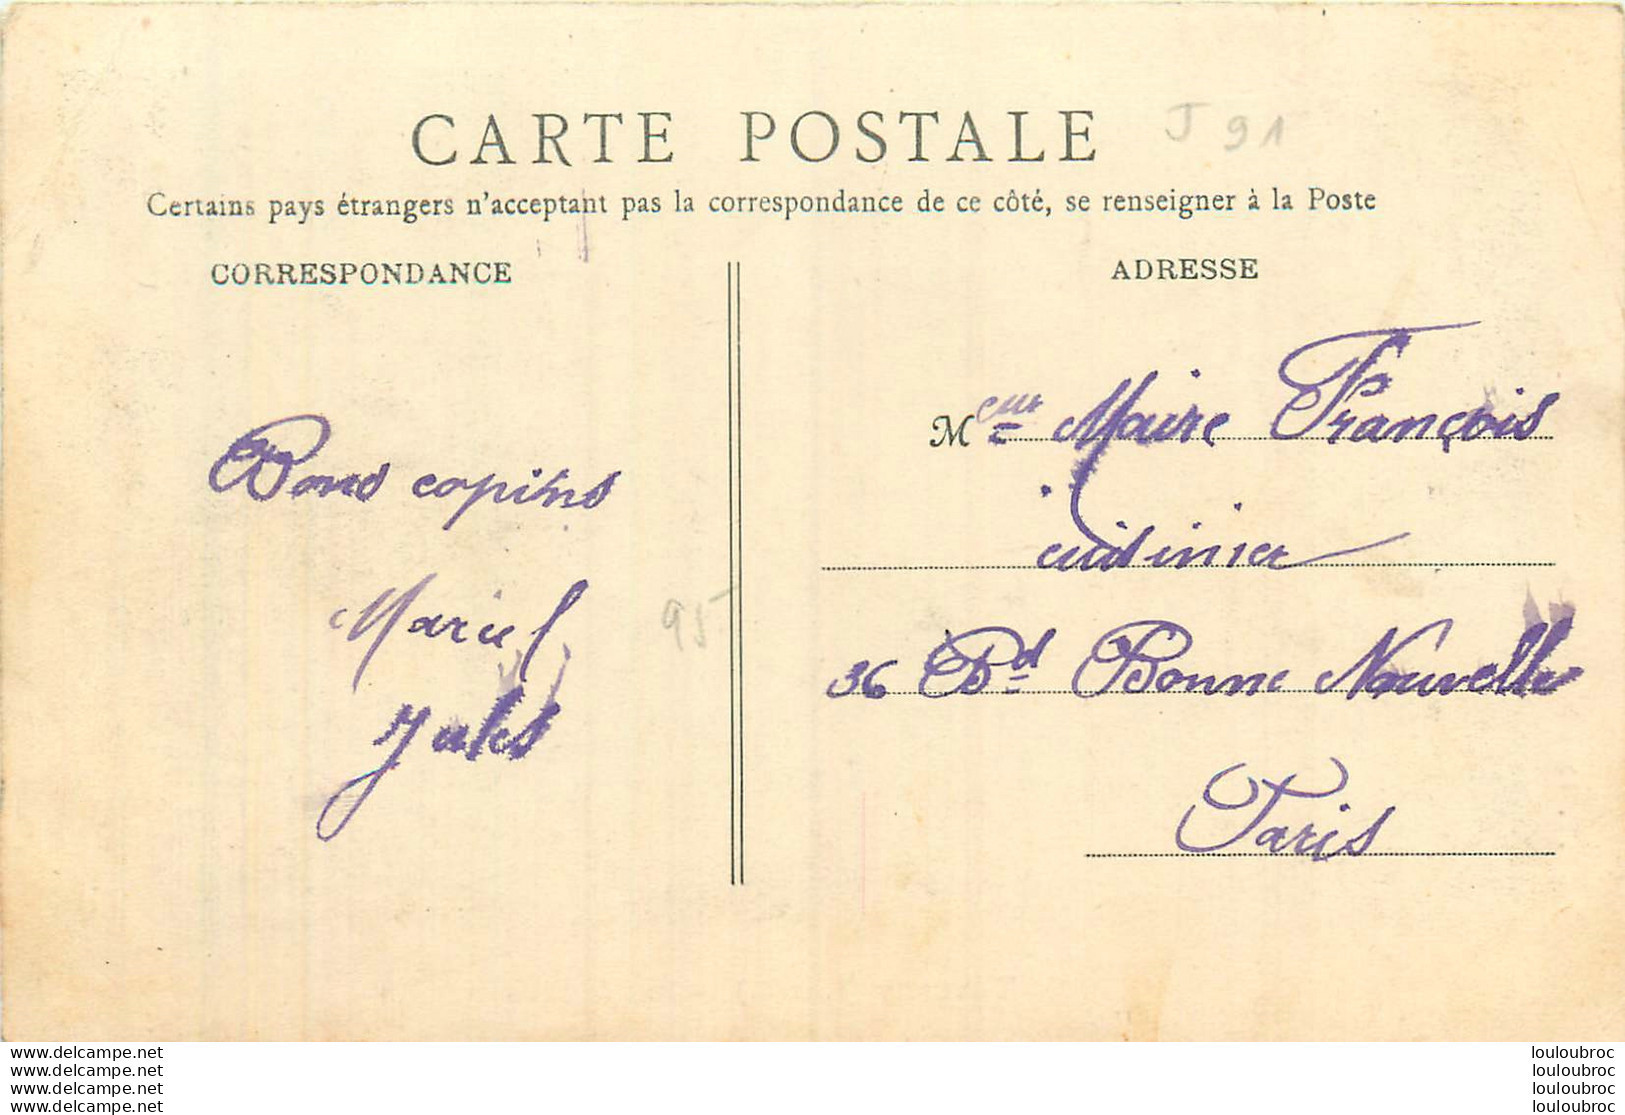 CARTE POSTALE J 91
Certains pays étrangers n'acceptant pas la correspondance de ce côté, se renseigner à la Poste
CORRESPONDANCE
ADRESSE
Bons copins
Marcel
Jules
95
Meur Maire François
cuisinier
36 Bd Bonne Nouvelle
Paris
www.delcampe.net
www.delcampe.net
www.delcampe.net
www.delcampe.net
louloubroc
louloubroc
louloubroc
louloubroc